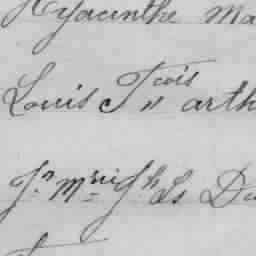 Hyacinthe Ma
Louis Fcois " arth
Jn Mrie Jh Ls Du